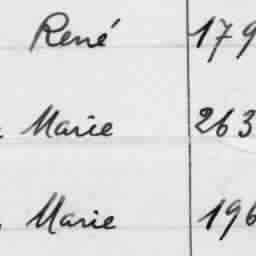 René 179
Marie 263
Marie 196